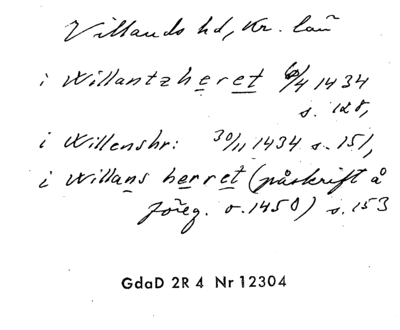 Villands hd, Kr. län
i Willantzheret 6/4 1434
s. 128,
i Willenshr: 30/11 1434 s. 151,
i Willans herret (påskrift å
föreg. o. 1450) s. 153
GdaD 2R 4 Nr 12304